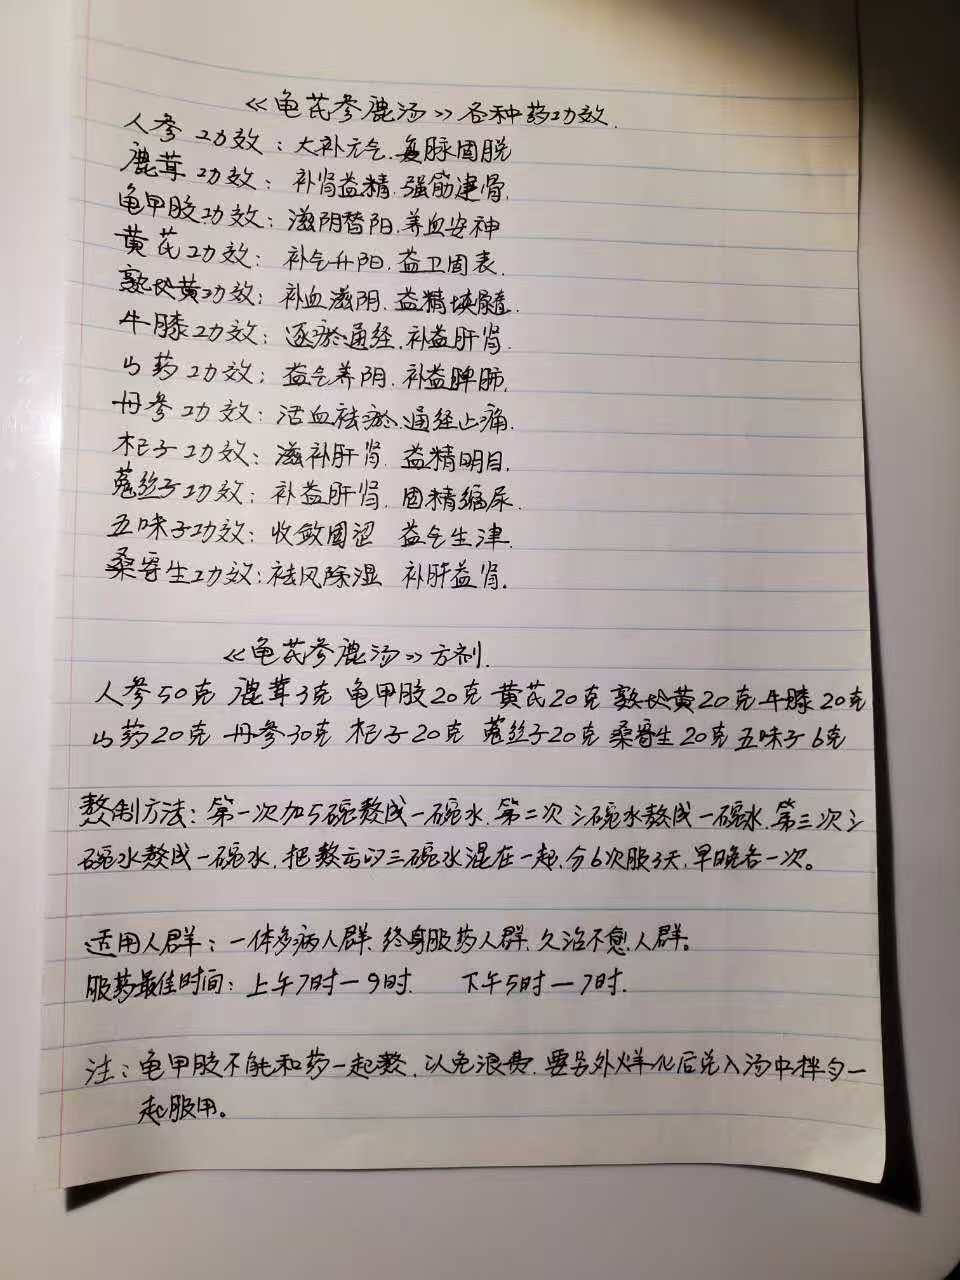 《龟芪参鹿汤》各种药功效.
人参功效：大补元气.复脉固脱
鹿茸功效：补肾益精.强筋建骨.
龟甲胶功效：滋阴潜阳.养血安神
黄芪功效：补气升阳.益卫固表.
熟地黄功效：补血滋阴.益精填髓.
牛膝功效：逐瘀通经.补益肝肾.
山药功效：益气养阴.补益脾肺.
丹参功效：活血祛瘀.通经止痛.
杞子功效：滋补肝肾.益精明目.
菟丝子功效：补益肝肾.固精缩尿.
五味子功效：收敛固涩 益气生津.
桑寄生功效：祛风除湿 补肝益肾.
《龟芪参鹿汤》方剂.
人参50克 鹿茸3克 龟甲胶20克 黄芪20克 熟地黄20克 牛膝20克
山药20克 丹参30克 杞子20克 菟丝子20克 桑寄生20克 五味子6克
熬制方法：第一次加5碗熬成一碗水.第二次三碗水熬成一碗水.第三次三
碗水熬成一碗水.把熬云的三碗水混在一起.分6次服3天.早晚各一次。
适用人群：一体多病人群.终身服药人群.久治不愈人群。
服药最佳时间：上午7时—9时. 下午5时—7时.
注：龟甲胶不能和药一起熬.以免浪费.要另外烊化后兑入汤中拌匀一
起服用。